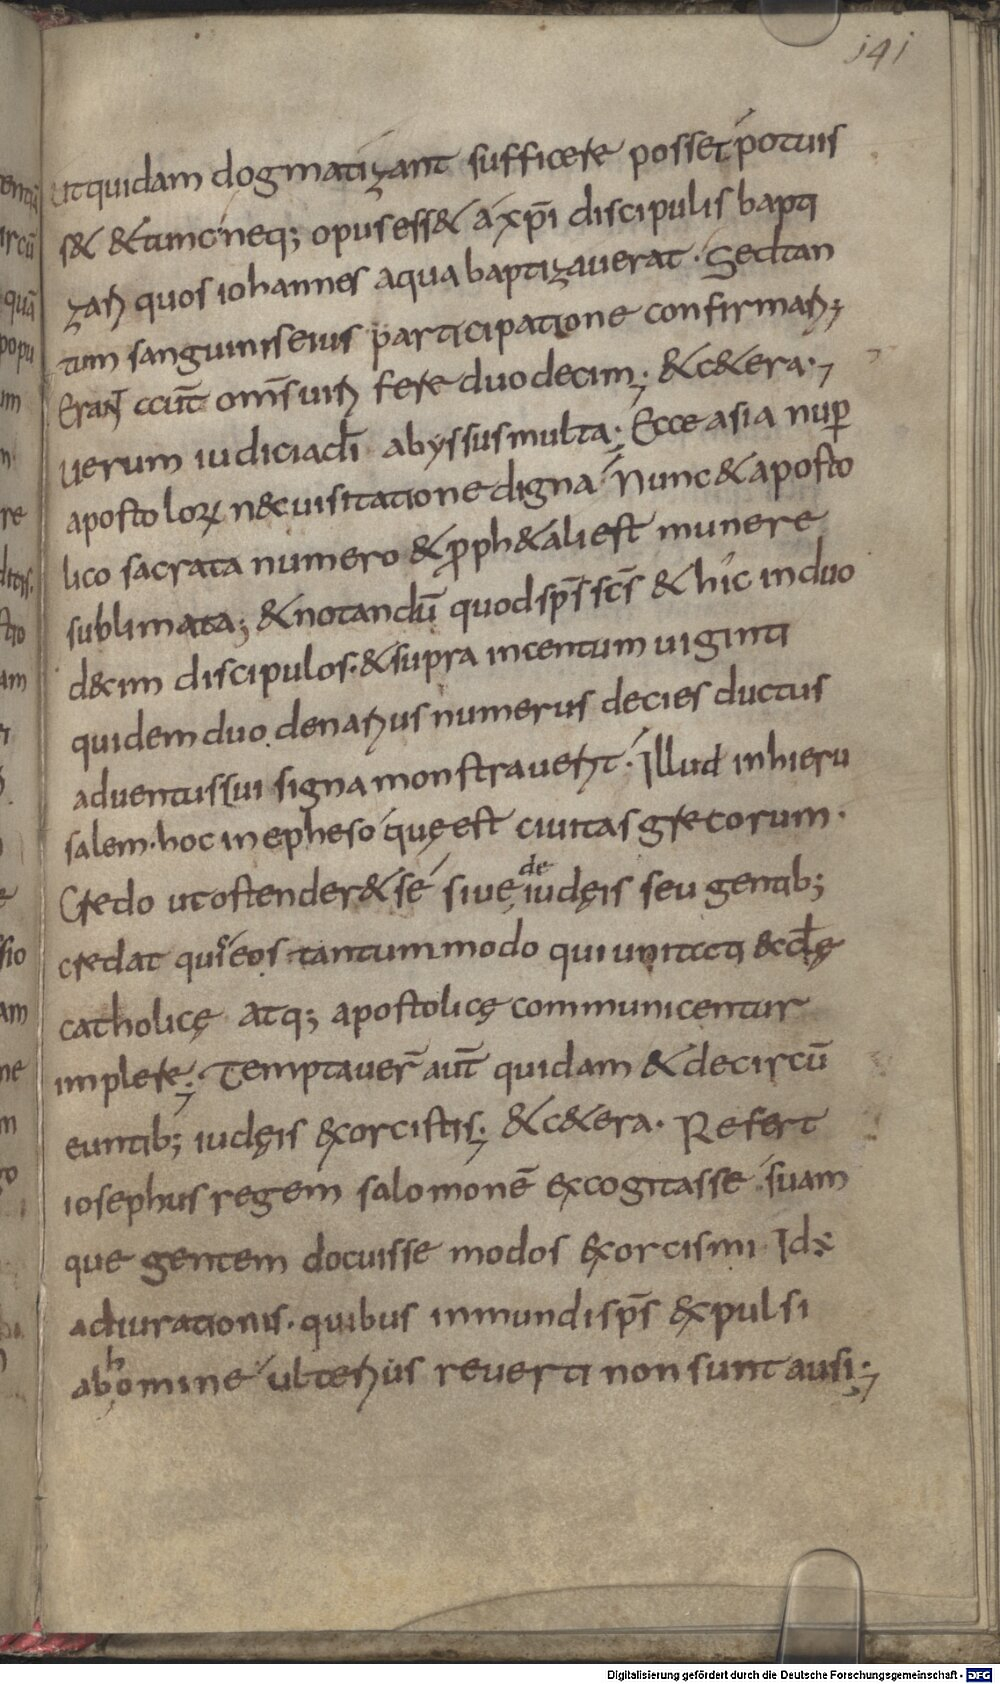 141
ut quidam dogmatizant sufficere posset potuis
s& &tunc neq; opus ess& a xp̄i discipulis bapti
zari quos iohannes aqua baptizauerat · Sed tan
tum sanguinis eius participatione confirmari;
Erant aut̄ om̄s uiri fere duodecim; &c&era·,
uerum iudicia dī abyssus multa; Ecce asia nuꝑ
apostoloꝝ nec uisitatione digna Nunc & aposto
lico sacrata numero &ꝓph&ali est munere
sublimata; &notandū quod sp̄s sc̄s & hic induo
decim discipulos·&supra incentum uiginti
quidem duo denarius numerus decies ductus
aduentus sui signa monstrauerit · Illud inhieru
salem·hoc in epheso quę est ciuitas grecorum·
Credo ut ostender& se siue de iudęis seu gentib;
credat quis eos tantummodo qui unitati eccłę
catholicę atq; apostolicę communicentur
implere; Temptauer̄ aut̄ quidam & decircū
euntib; iudęis exorcistis; &c&era· Refert
iosephus regem salomonē excogitasse suam
que gentem docuisse modos exorcismi Id÷
adiurationis·quibus inmundi sp̄s expulsi
ab homine ulterius reuerti non sunt ausi;
Digitalisierung gefördert durch die Deutsche Forschungsgemeinschaft - DFG